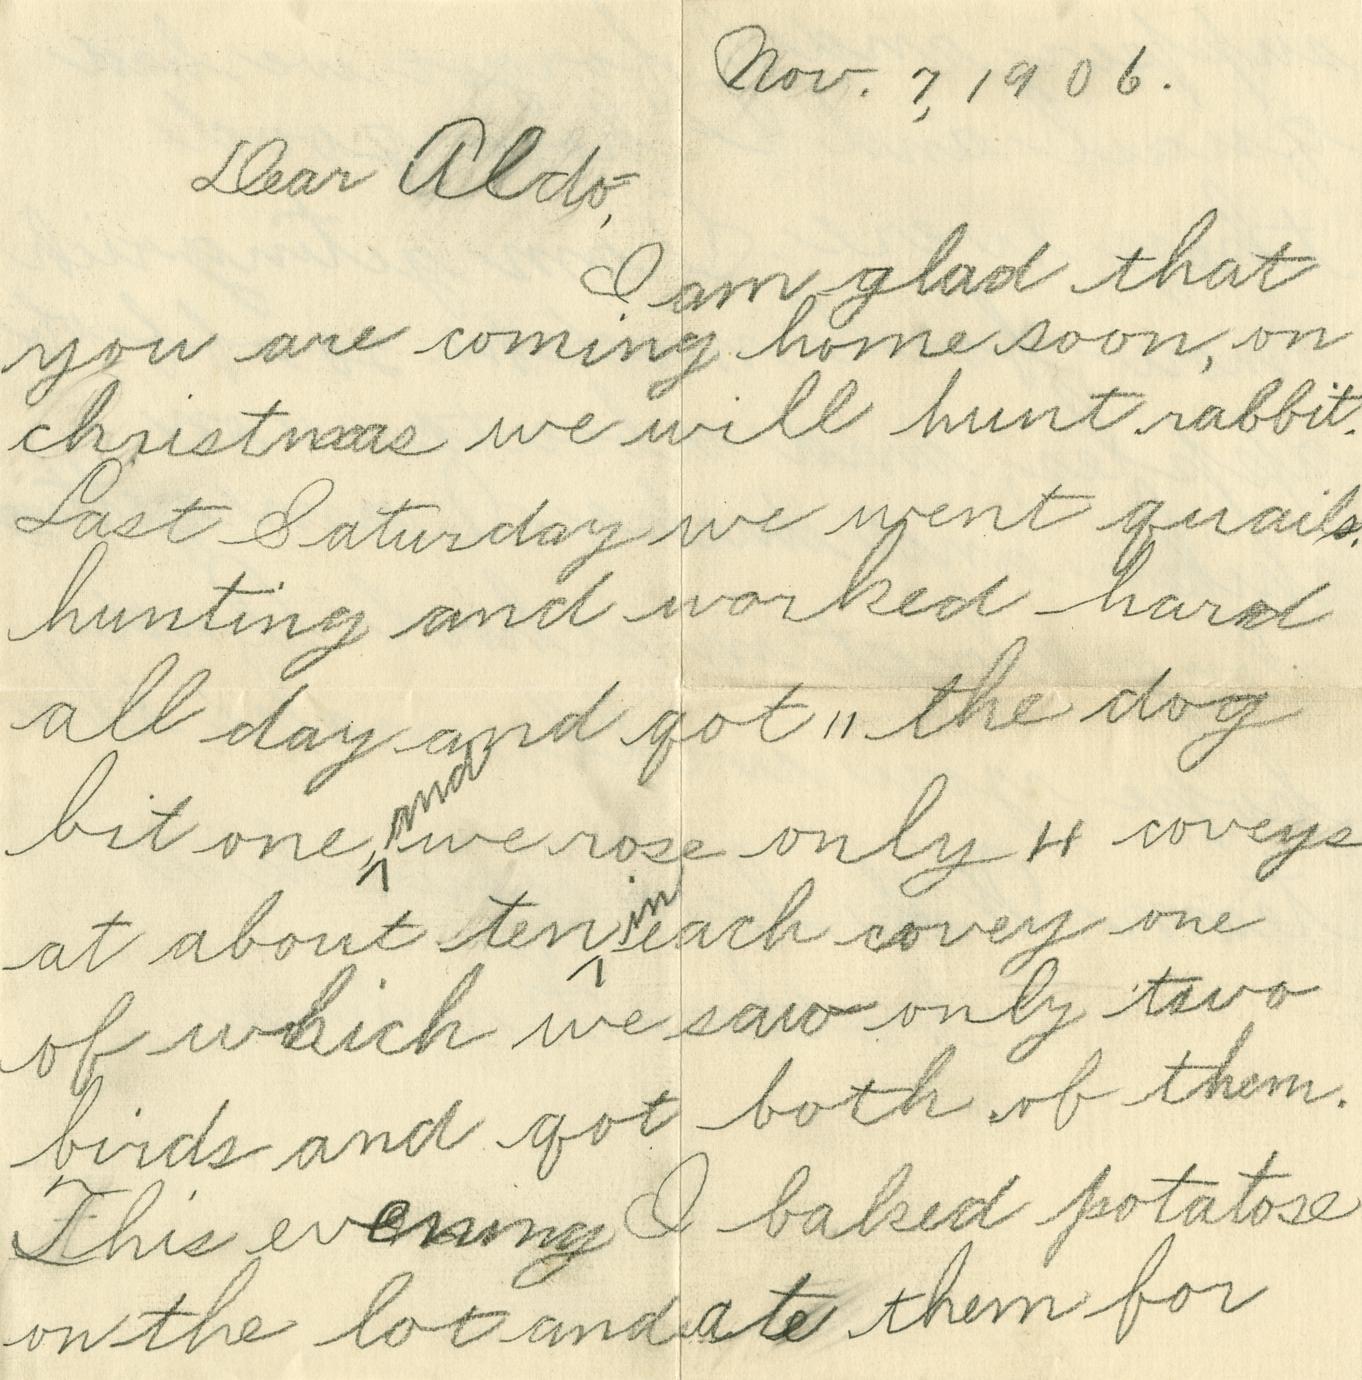 Nov. 7, 1906.
Dear Aldo,
I am glad that
you are coming home soon, on
christmas we will hunt rabbit.
Last Saturday we went quails.
hunting and worked hard
all day and got 11 the dog
bit one, and we rose only 4 coveys
at about ten in each covey one
of which we saw only two
birds and got both of them.
This evening I baked potatose
on the lot and ate them for